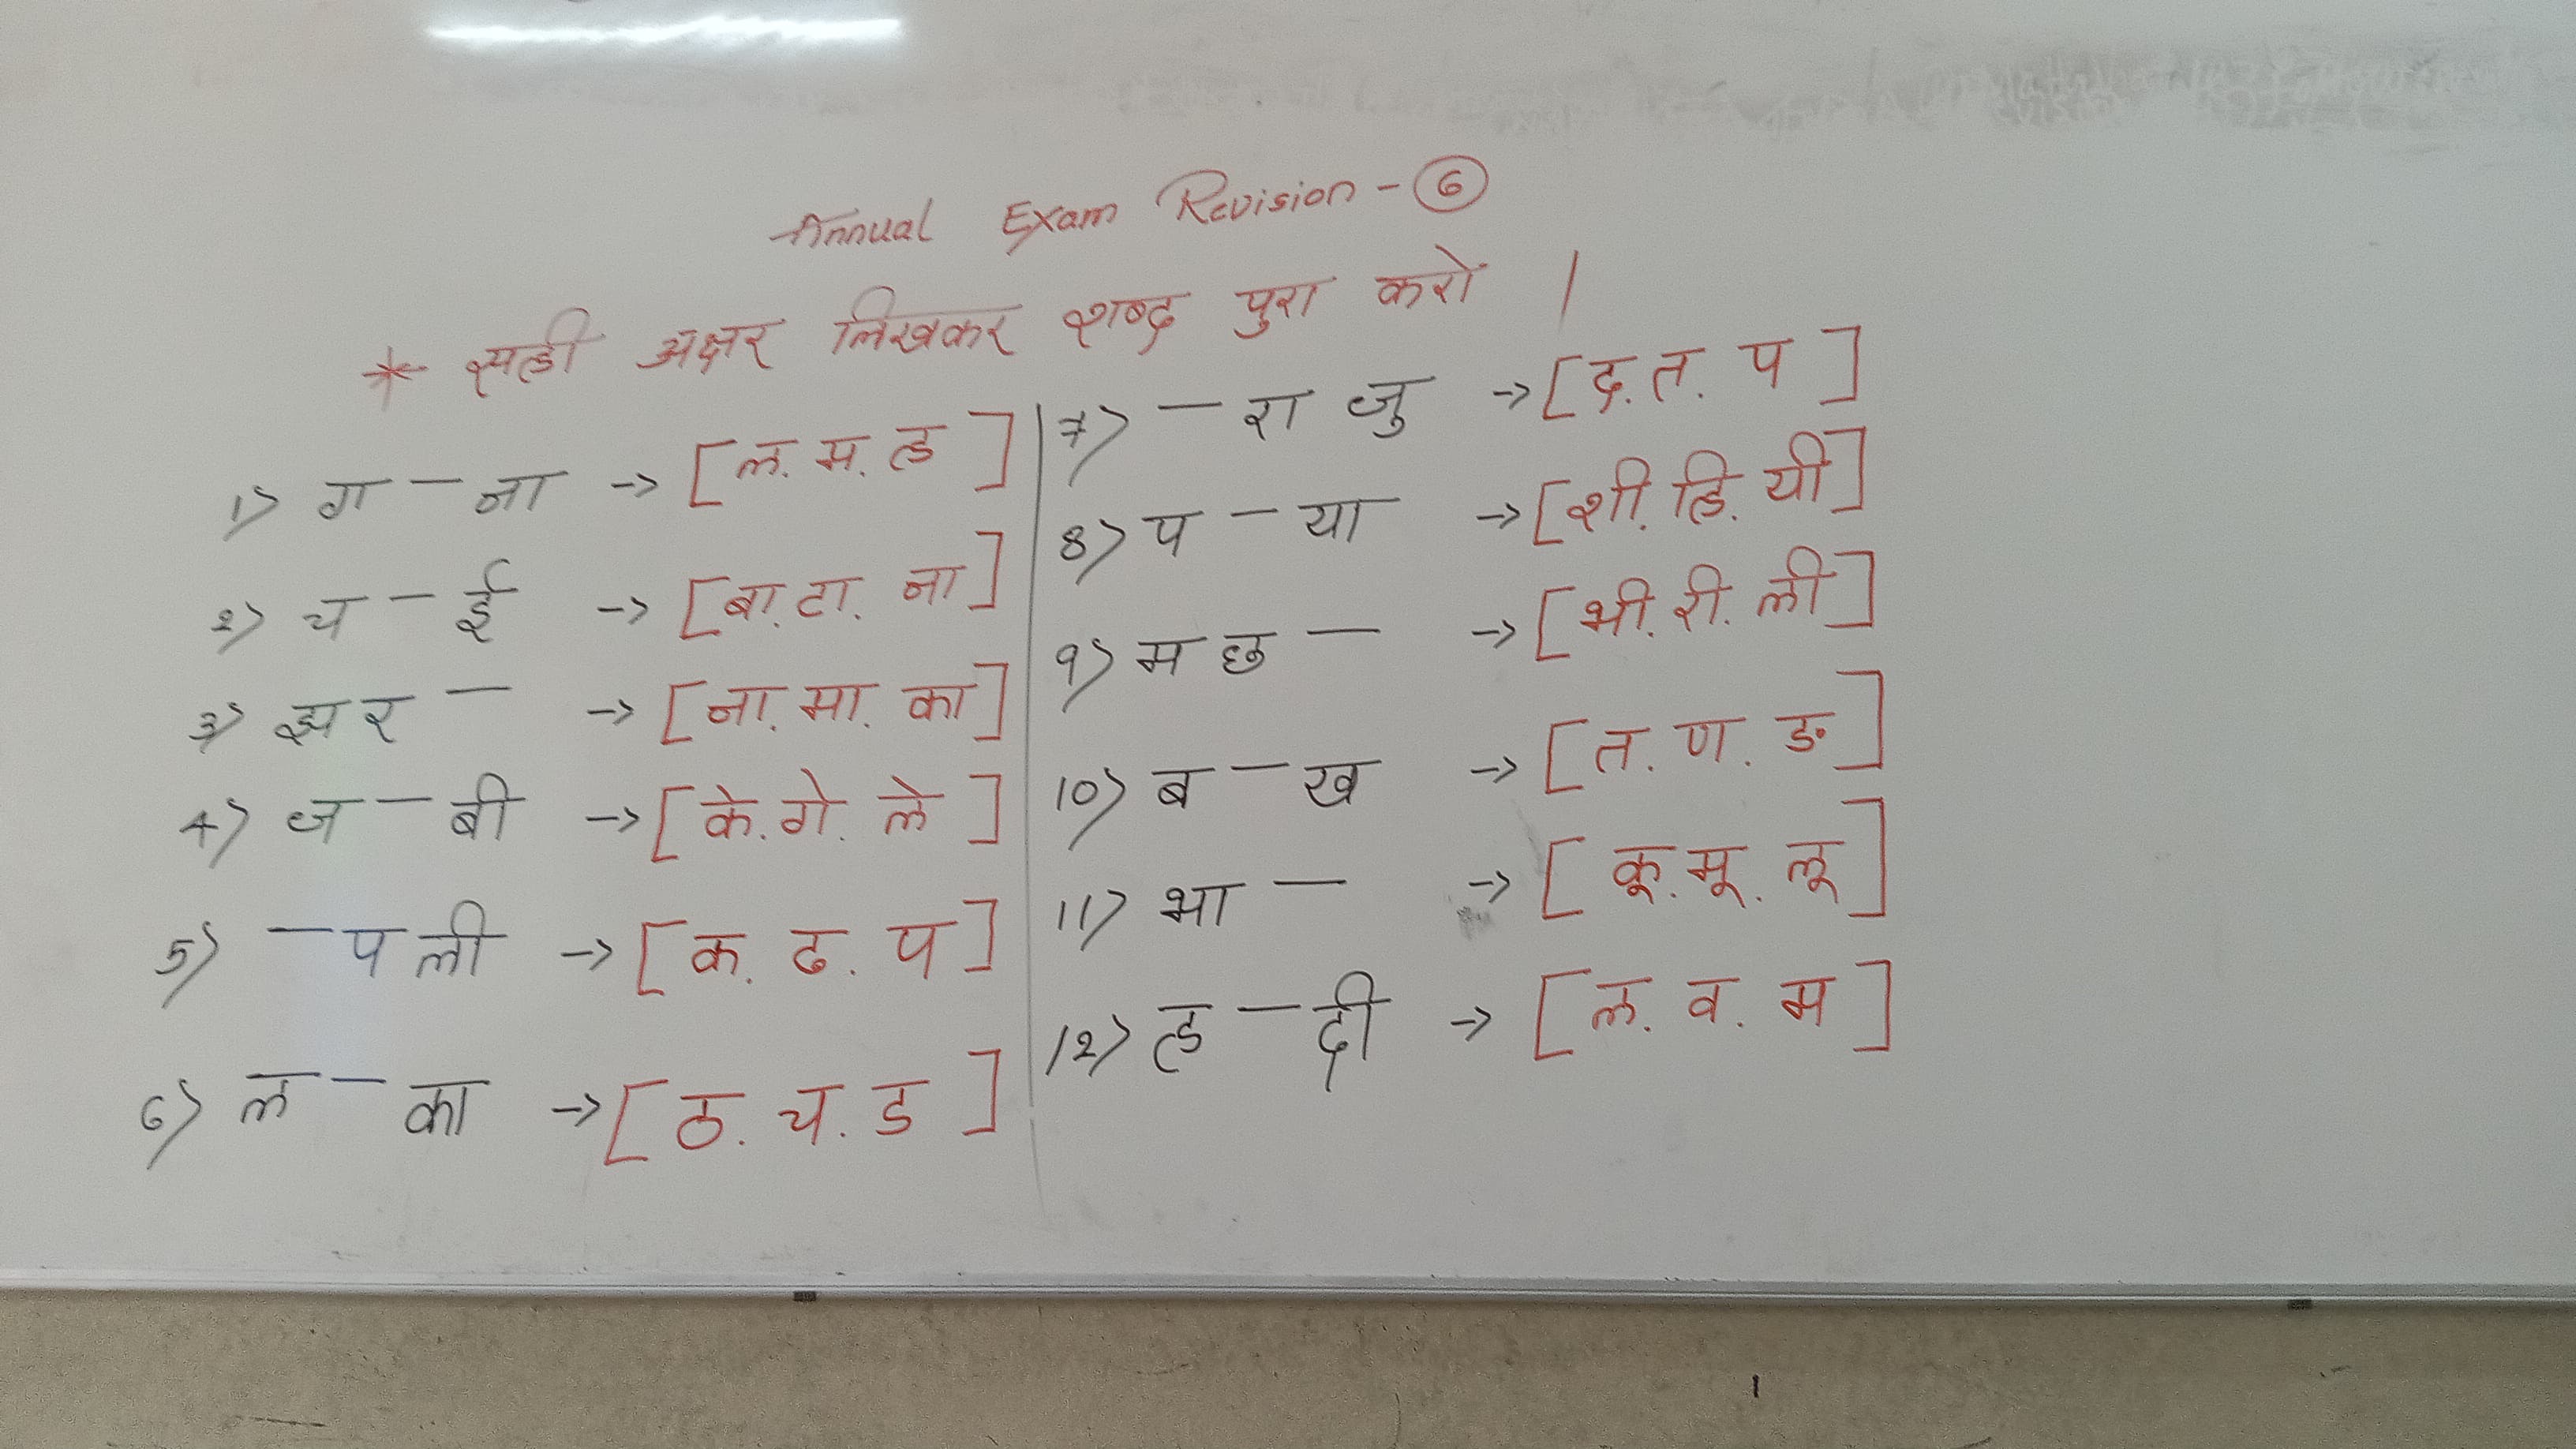 Annual Exam Revision - 6
* सही अक्षर लिखकर शब्द पुरा करो |
1) ग - ना -> [ल. म. ह]
2) च - ई -> [बा. टा. ना]
3) झ र - -> [ना. मा. का]
4) ज - बी -> [के. गे. ले]
5) - प ली -> [क. ढ. प]
6) ल - का -> [ठ. च. ड]
7) - रा जु -> [द. त. प]
8) प - या -> [शी. हि. यी]
9) म छ - -> [भी. री. ली]
10) ब - ख -> [त. ण. ङ]
11) भा - -> [कू. मू. लू]
12) ह - दी -> [ल. व. म]